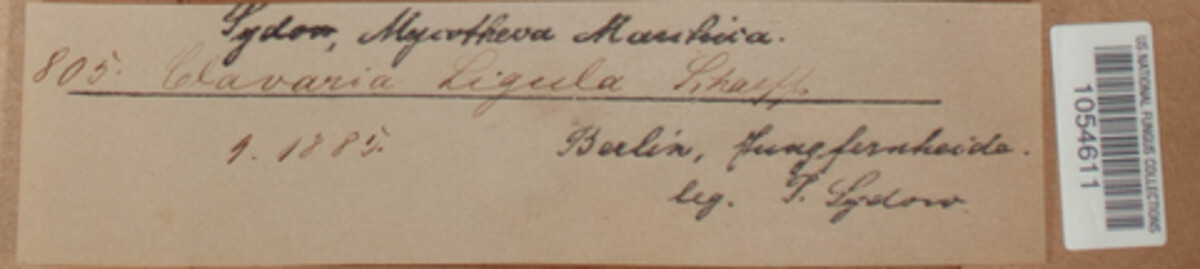 Sydow, Mycotheca Marchica.
805. Clavaria Ligula Schaeff.
9. 1885.
Berlin, Jungfernheide.
leg. P. Sydow
US NATIONAL FUNGUS COLLECTIONS
1054611